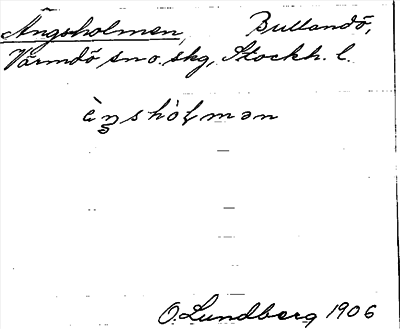 Ängsholmen, Bullandö,
Värmdö sn o. skg, Stockh. l.
O. Lundberg 1906